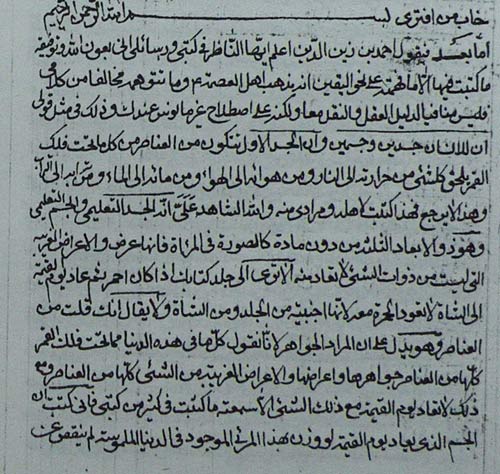 خاب من افترى بسم الله الرحمن الرحيم
اما بعد فيقول احمد بن زين الدين اعلم ايها الناظر في كتبي ورسائلي اني بعون الله وتوفيقه
ما كتبت فيها الا ما فهمته على نحو اليقين انه مذهب اهل العصمة ع وما تتوهم مخالفا من كلامي
فليس منافيا لدليل العقل والنقل معا ولكنه على اصطلاح غير مأنوس عندك وذلك في مثل قولي
ان للانسان جسدين وجسمين وان الجسد الاول تتكون من العناصر من كل ما تحت فلك
القمر يلحق كل شئ من حرارته الى النار ومن هوائه الى الهواء ومن مائه الى الماء ومن ترابه الى التراب
وهذا لا يرجع فهذا كتبت لاهله ومرادي منه والله الشاهد علي انه الجسد التعليمي والجسم التعليمي
وهو ذو الابعاد الثلثة من دون مادة كالصورة في المرآة فانها عرض والاعراض الغريبة
التي ليست من ذوات الشئ لا تعاد معه الا ترى الى جلد كتابك اذا كان احمر ثم عاد يوم القيمة
الى الشاة لا تعود الحمرة معه لانها اجنبية من الجلد ومن الشاة ولا يقال انك قلت من
العناصر وهو يدل على ان المراد الجواهر لانا نقول كل ما في هذه الدنيا مما تحت فلك القمر
كلها من العناصر جواهرها واعراضها والاعراض الغريبة من الشئ كلها من العناصر ومع
ذلك لا تعاد يوم القيمة مع ذلك الشئ الا سمعته ما كتبت في كثير من كتبي فاني كتبت ان
الجسم الذي يعاد يوم القيمة لو وزن بهذا المرئي الموجود في الدنيا الملموسة لم ينقص عن